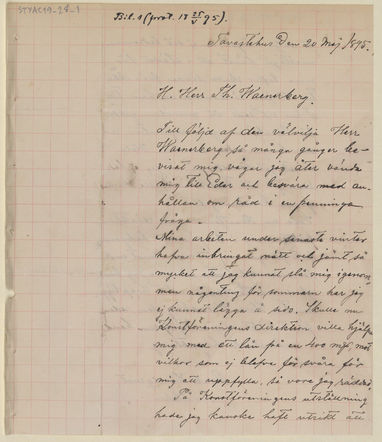 STYAC19-24-1
Bil. 1 (prot. 18 25/V 95).
Tavastehus den 20 Maj 1895.
H. Herr Th. Waenerberg.
Till följd af den välvilja Herr
Waenerberg så många gånger be-
visat mig vågar jag åter vända
mig till Eder och besvära med an-
hållan om råd i en penninge
fråga.
Mina arbeten under senaste vinter
hafva inbringat nätt och jämt så
mycket att jag kunnat slå mig igenom
men någonting för sommaren har jag
ej kunnat lägga å sido. Skulle nu
Konstföreningens direktion villa hjälpa
mig med ett lån på en 400 mk, mot
vilkor som ej blefve för svåra för
mig att uppfylla, så vore jag räddad.
På Konstföreningens utställning
hade jag kanske haft utsikt att